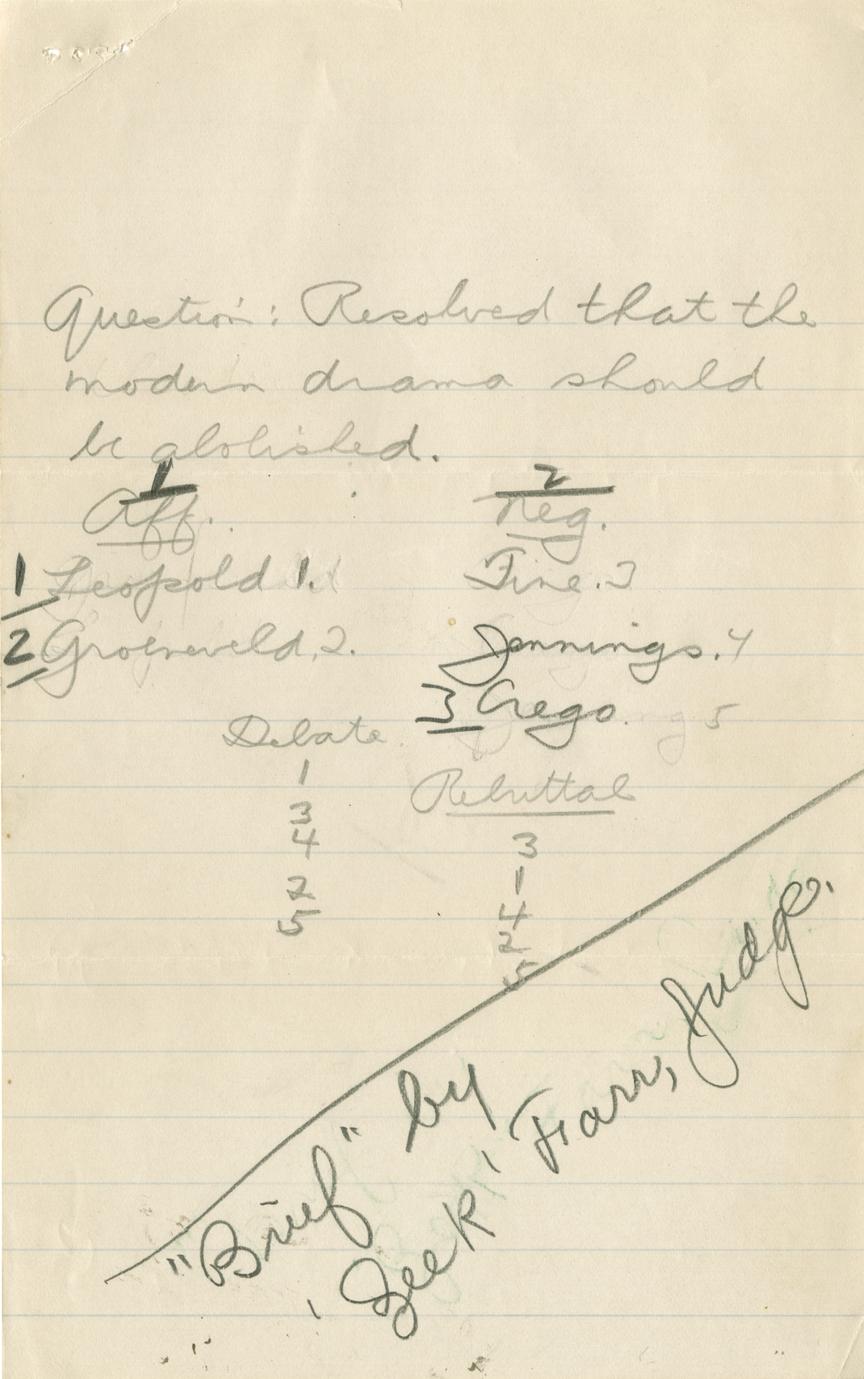 Question: Resolved that the
modern drama should
be abolished.
1 2
Aff. Neg.
1 Leopold 1. Fine. 3
2 Groeneveld, 2. Jennings. 4
3 Crego. 5
Debate Rebuttal
1 3
3 1
4 4
2 2
5 5
"Brief" by
'Zeek' Farr, Judge.